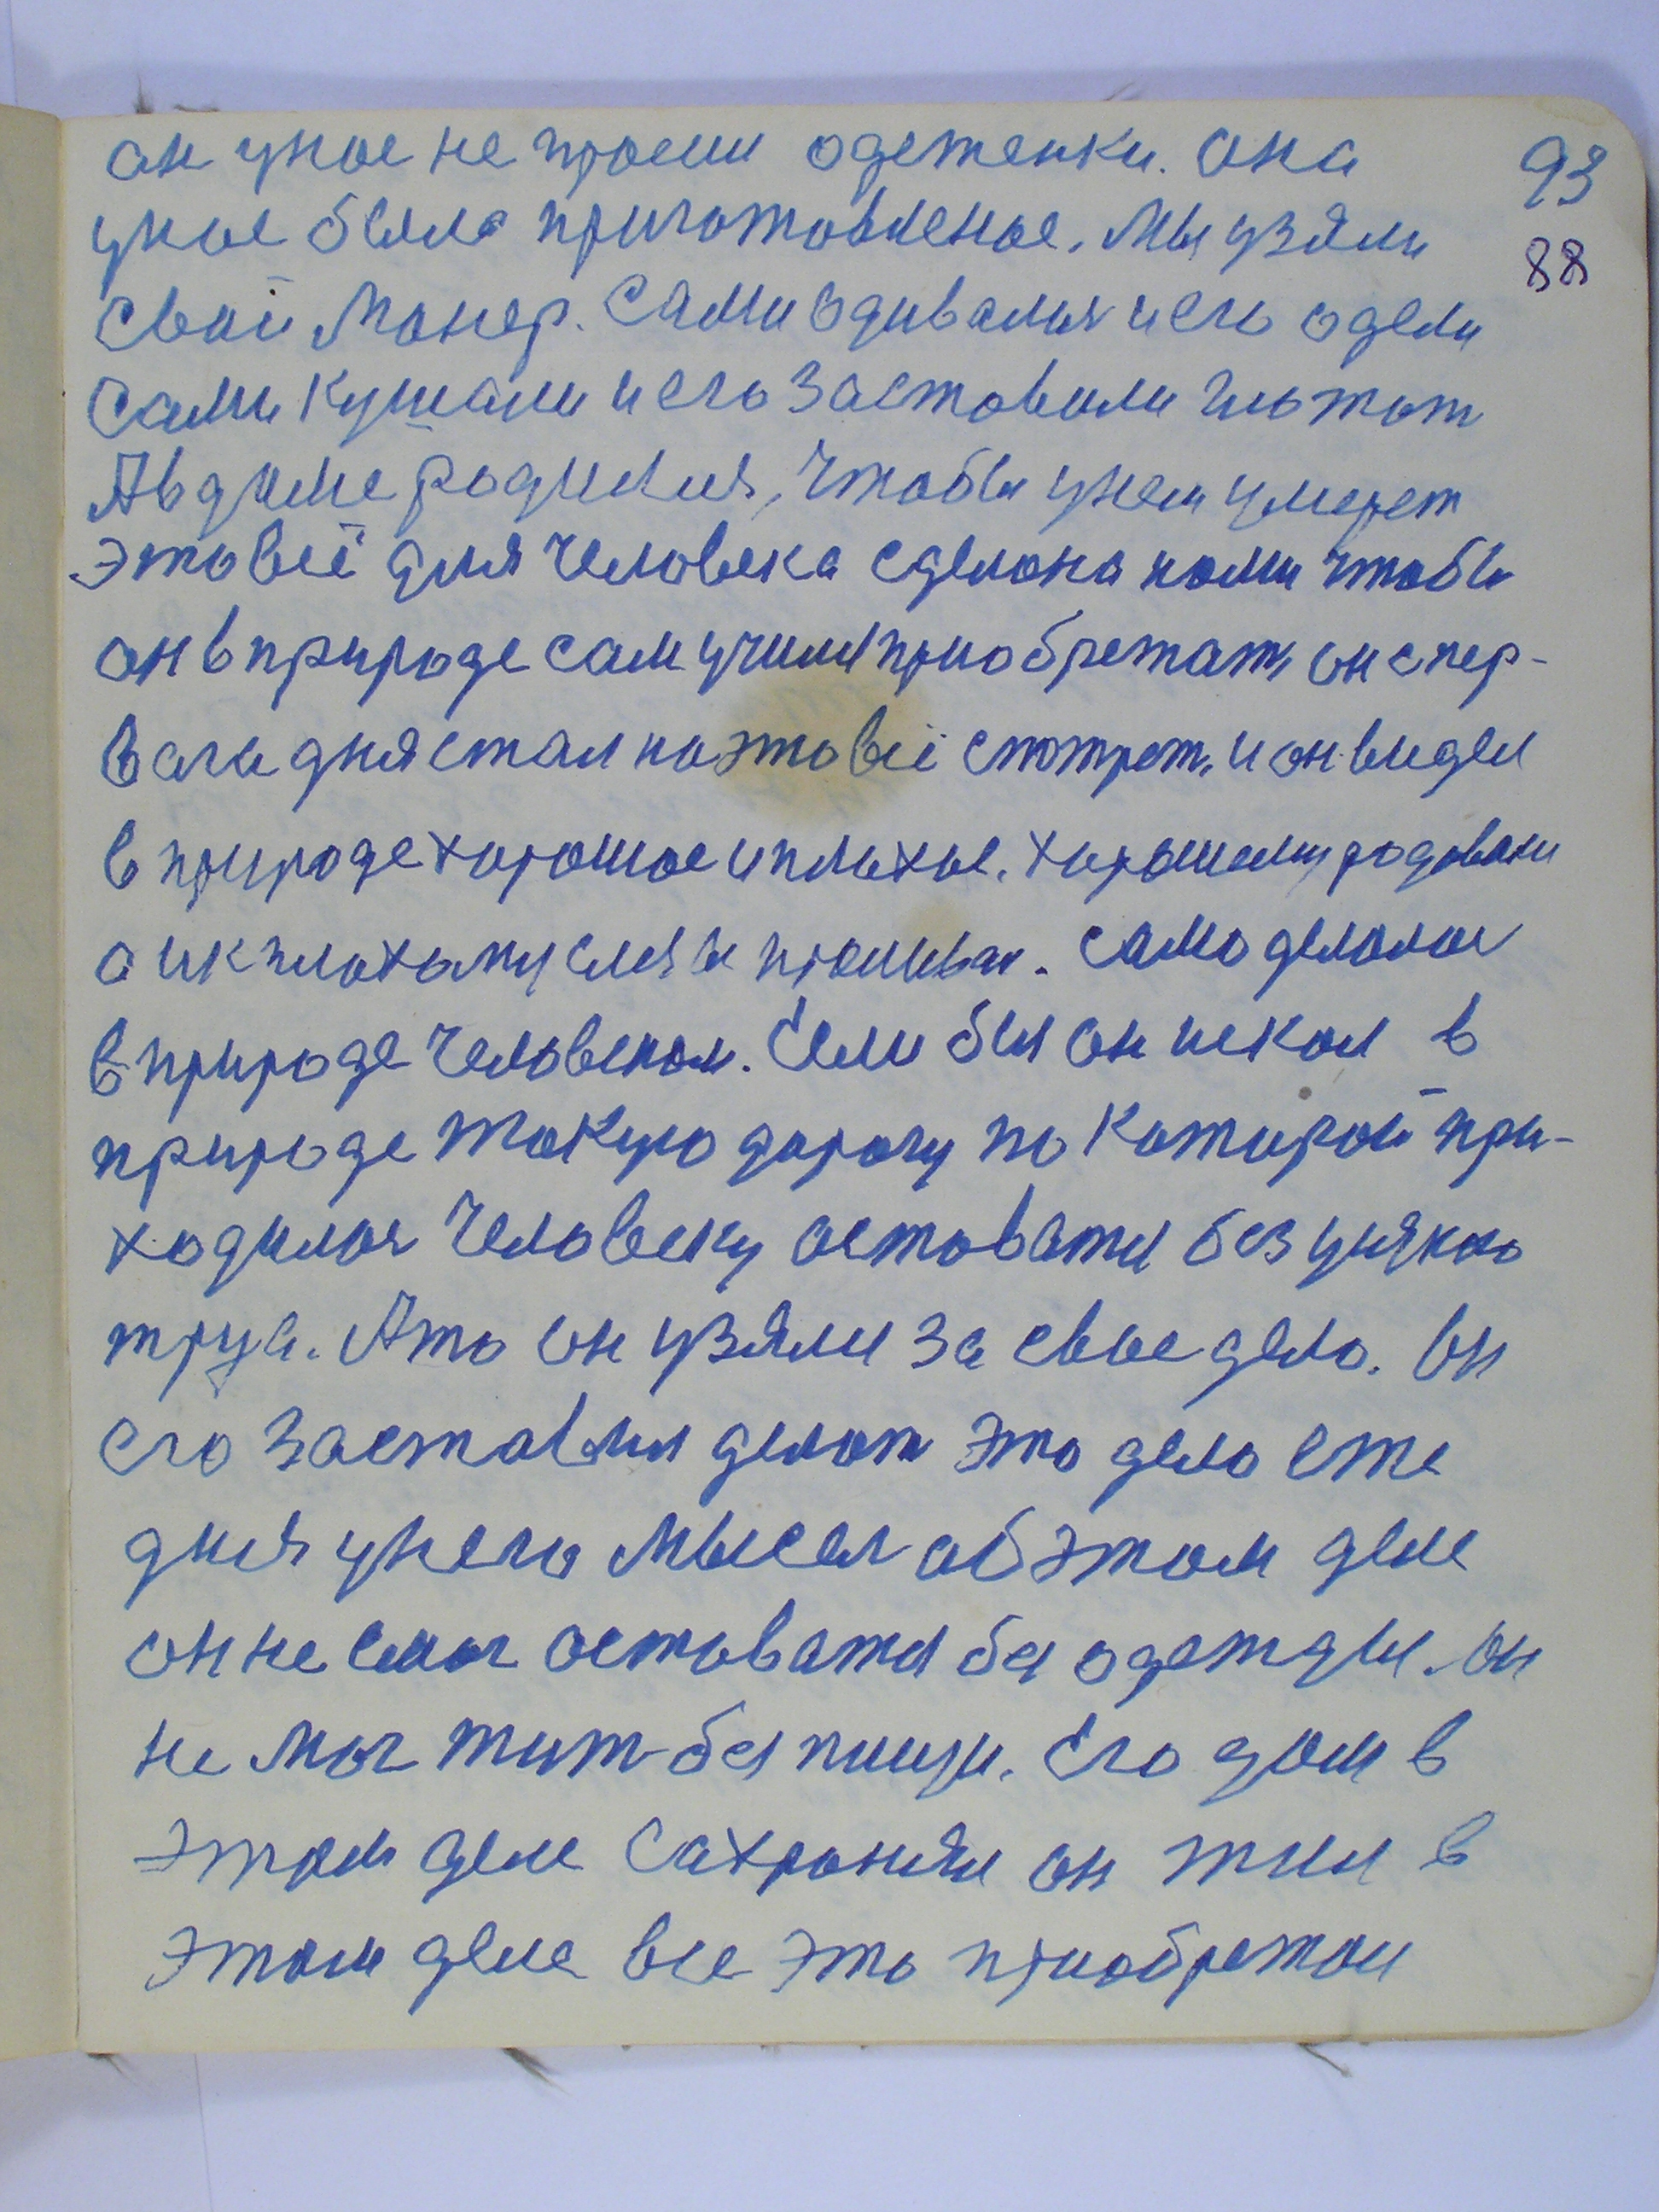 он унас не просил одеженки. она 93
унас была приготовленое. Мы узяли 88
Свой Манер. Сами одивалися и его одели
Сами кушали и его заставили глотат
Авдиме родился, чтобы унем умерет
это всё для человека сделона нами чтобы
он в природе сам учился приобретат, он с пер-
вага дня стал на это всё смотрет. и он видел
в природе хорошое и плохое. Хорошему родовался
а к плохому слезы проливал. Само делолос
в природе человеком. Если бы он искал в
природе токую дорогу по каторой при-
ходилося человеку оставатся без усякого
труда. Ато он узялся за свое дело. Он
его заставлял делат это дело еже
дня унего мысел об этом деле
он не смог остоватся без одежды. он
не мог жит без пищи. Его дом в
этом деле Сахронял он жил в
этом деле все это приобретал